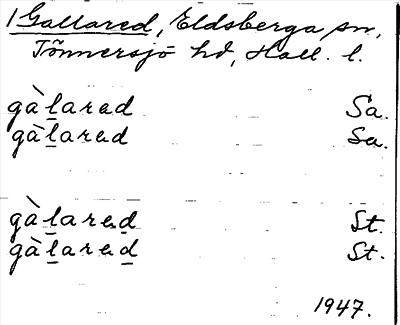 1 Gallared, Eldsberga sn,
Tönnersjö hd, Hall. l.
gàlared Sa.
gàlared Sa.
gàlared St.
gàlared St.
1947.